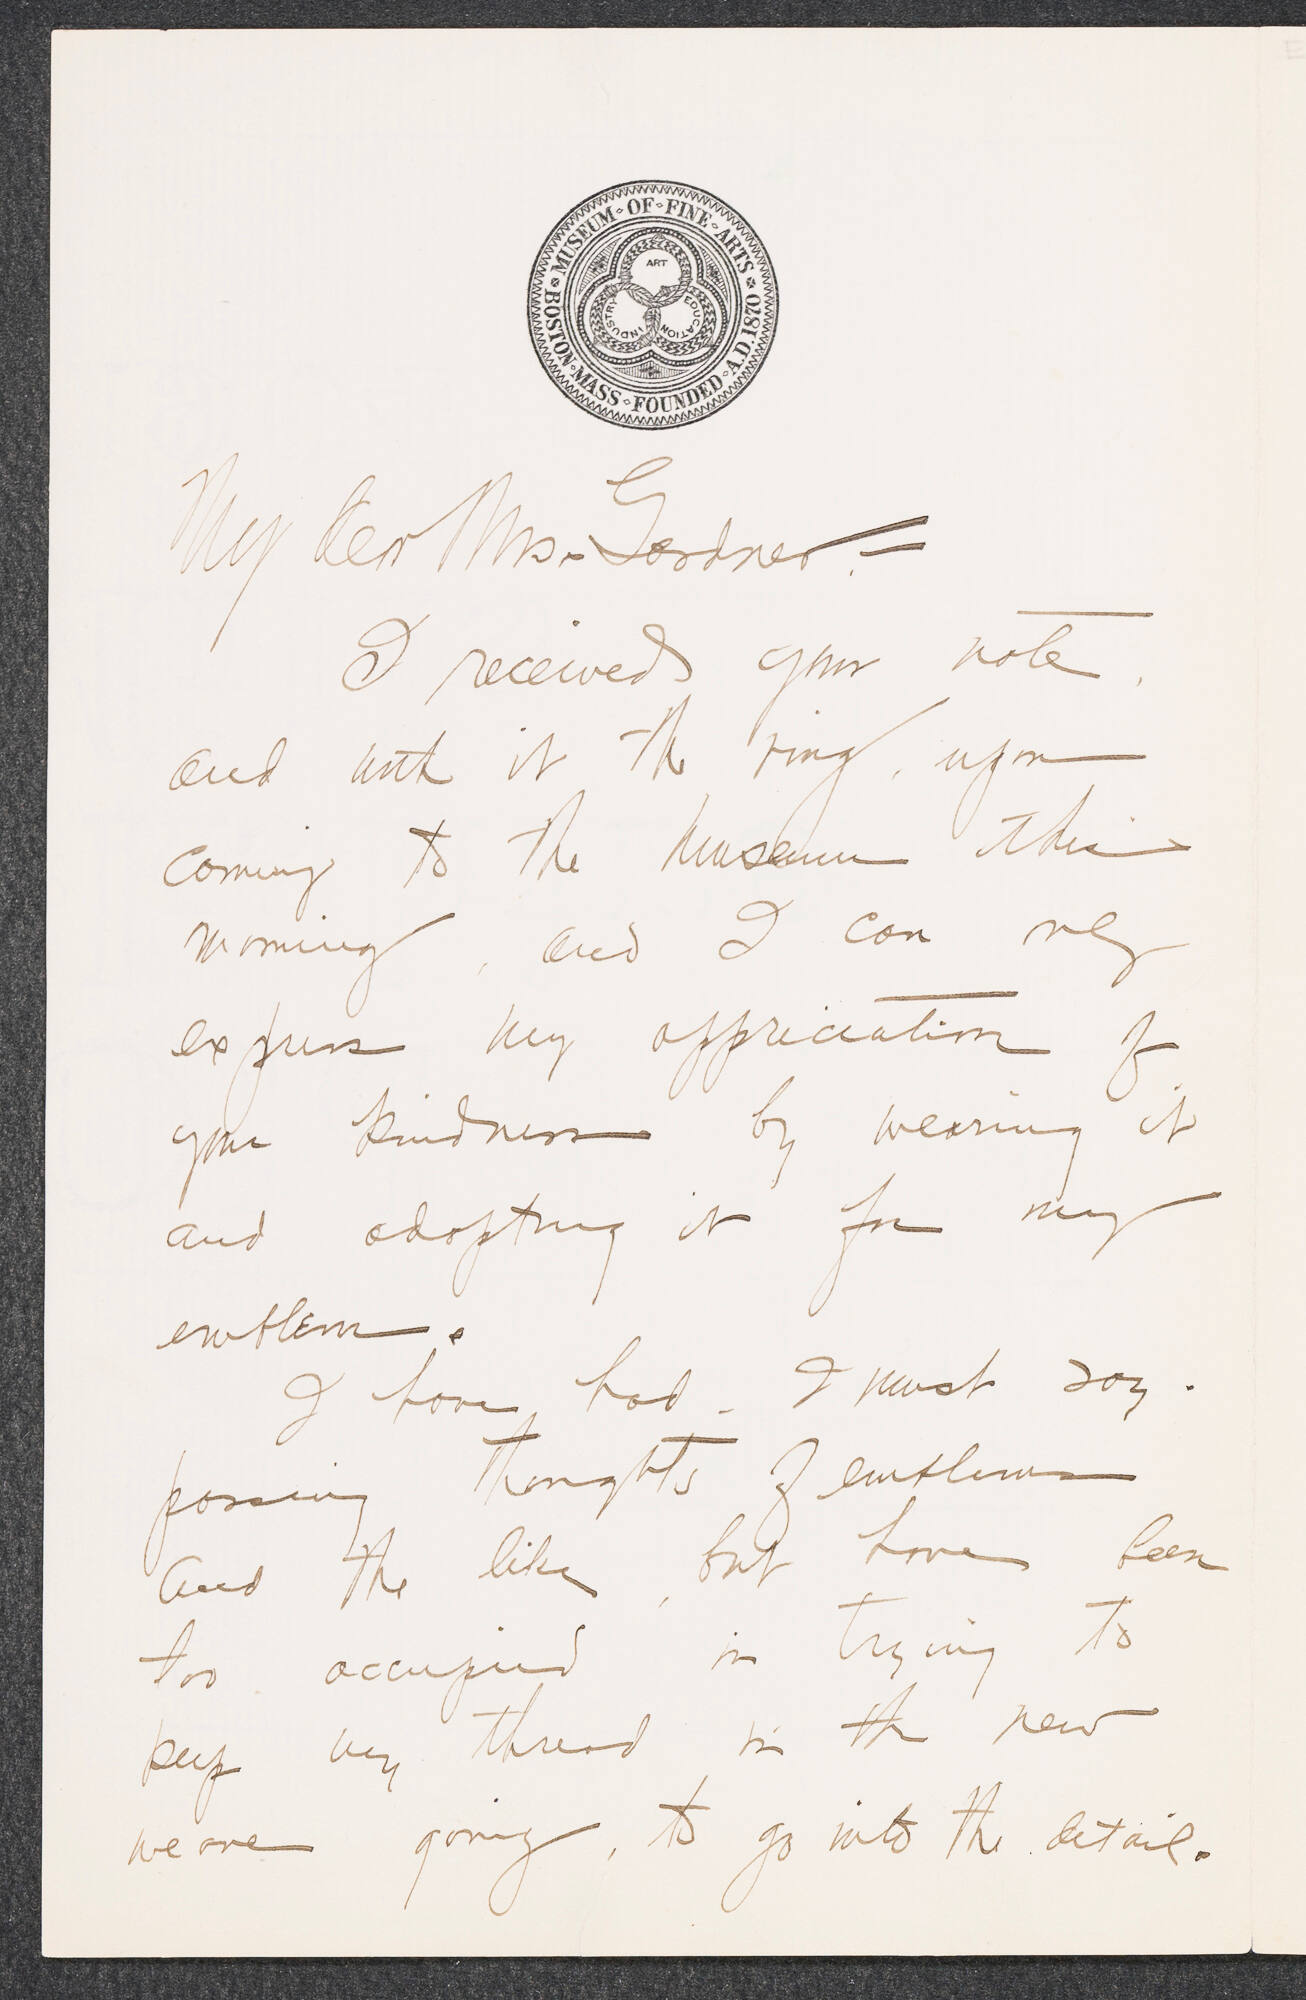 BOSTON · MASS · MUSEUM · OF · FINE · ARTS · FOUNDED · A.D. 1870
ART
INDUSTRY
EDUCATION
My dear Mrs. Gardner. =
I received your note,
and with it the ring, upon
coming to the Museum this
morning, and I can only
express my appriciation of
your kindness by wearing it
and adopting it for my
emblem.
I have had - I must say -
passing thoughts of emblems
and the like, but have been
too occupied in trying to
keep my thread in the new
weave going, to go into the detail.